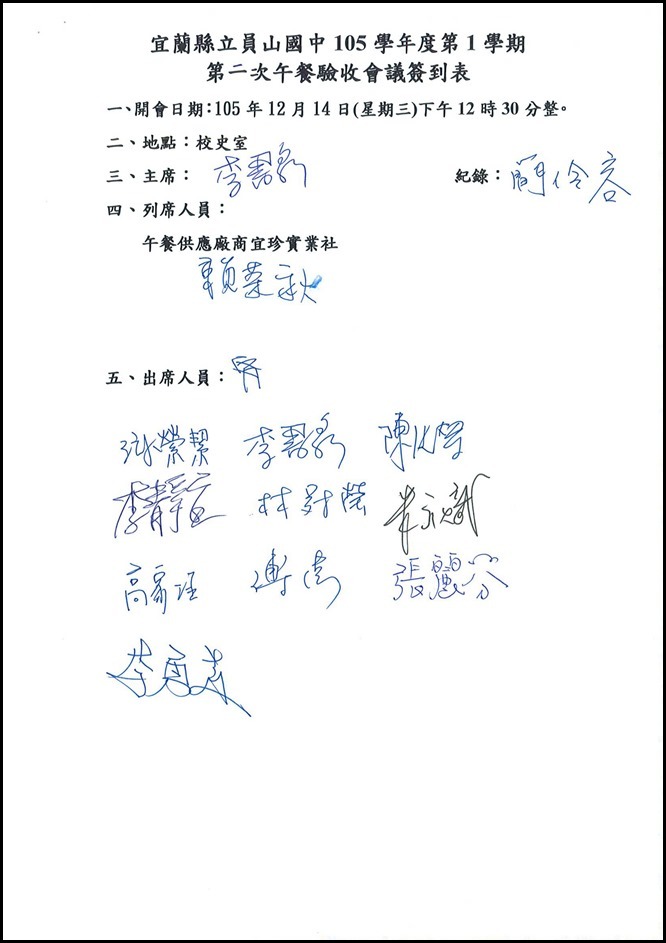 宜蘭縣立員山國中 105 學年度第 1 學期
第二次午餐驗收會議簽到表
一、開會日期：105 年 12 月 14 日(星期三)下午 12 時 30 分整。
二、地點：校史室
三、主席： 李 紀錄：簡伶容
四、列席人員：
午餐供應廠商宜珍實業社
賴榮秋
五、出席人員：
李 陳
李靜宜 林 榮
高 張麗芬
李